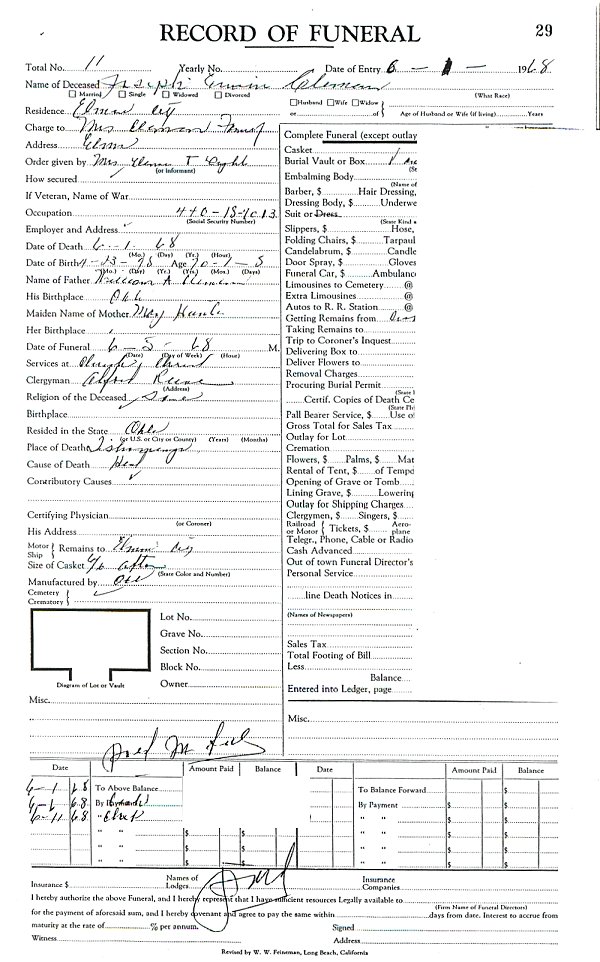 RECORD OF FUNERAL
29
Total No. 11 Yearly No. Date of Entry 6 - 1 - 1968
Name of Deceased Joseph Erwin
Married Single Widowed Divorced
(What Race)
Husband Wife Widow
Residence Elmore City
or of Age of Husband or Wife (if living) Years
Charge to Mrs
Address
Order given by Mrs
(or informant)
How secured
If Veteran, Name of War
Occupation 440-18-
(Social Security Number)
Employer and Address
Date of Death 6 - 1 - 68
(Mo.) (Day) (Yr.) (Hour)
Date of Birth Age 70-1-8
(Mo.) (Day) (Yr.) (Yrs.) (Mos.) (Days)
Name of Father William A
His Birthplace
Maiden Name of Mother May
Her Birthplace
Date of Funeral 6 - 5 - 68 M.
(Date) (Day of Week) (Hour)
Services at Church Christ
Clergyman Alfred
(Address)
Religion of the Deceased Same
Birthplace
Resided in the State Okla
(or U.S. or City or County) (Years) (Months)
Place of Death Tishomingo
Cause of Death
Contributory Causes
Certifying Physician
(or Coroner)
His Address
Motor Ship Remains to City
Size of Casket
(State Color and Number)
Manufactured by
Cemetery
Crematory
Diagram of Lot or Vault
Lot No.
Grave No.
Section No.
Block No.
Owner
Misc.
Complete Funeral (except outlay
Casket
Burial Vault or Box
Embalming Body
(Name of
Barber, $ Hair Dressing,
Dressing Body, $ Underwe
Suit or Dress
(State Kind &
Slippers, $ Hose,
Folding Chairs, $ Tarpaul
Candelabrum, $ Candle
Door Spray, $ Gloves
Funeral Car, $ Ambulanc
Limousines to Cemetery @
Extra Limousines @
Autos to R. R. Station @
Getting Remains from
Taking Remains to
Trip to Coroner's Inquest
Delivering Box to
Deliver Flowers to
Removal Charges
Procuring Burial Permit
Certif. Copies of Death Ce
Pall Bearer Service, $ Use of
Gross Total for Sales Tax
Outlay for Lot
Cremation
Flowers, $ Palms, $ Mat
Rental of Tent, $ of Tempo
Opening of Grave or Tomb
Lining Grave, $ Lowering
Outlay for Shipping Charges
Clergymen, $ Singers, $
Railroad or Motor Tickets, $ Aero-plane
Telegr., Phone, Cable or Radio
Cash Advanced
Out of town Funeral Director's
Personal Service
line Death Notices in
(Names of Newspapers)
Sales Tax
Total Footing of Bill
Less
Balance
Entered into Ledger, page
Misc.
Date Amount Paid Balance Date Amount Paid Balance
6-1 68 To Above Balance To Balance Forward $
68 By Payment By Payment $ $
6-11 68 " " " $ $
" " $ $ " " $ $
" " $ $ " " $ $
" " $ $ " " $ $
Insurance $ Names of Lodges Insurance Companies
I hereby authorize the above Funeral, and I hereby represent that I have sufficient resources Legally available to
(Firm Name of Funeral Directors)
for the payment of aforesaid sum, and I hereby covenant and agree to pay the same within days from date. Interest to accrue from
maturity at the rate of % per annum. Signed
Witness Address
Revised by W. W. Feineman, Long Beach, California